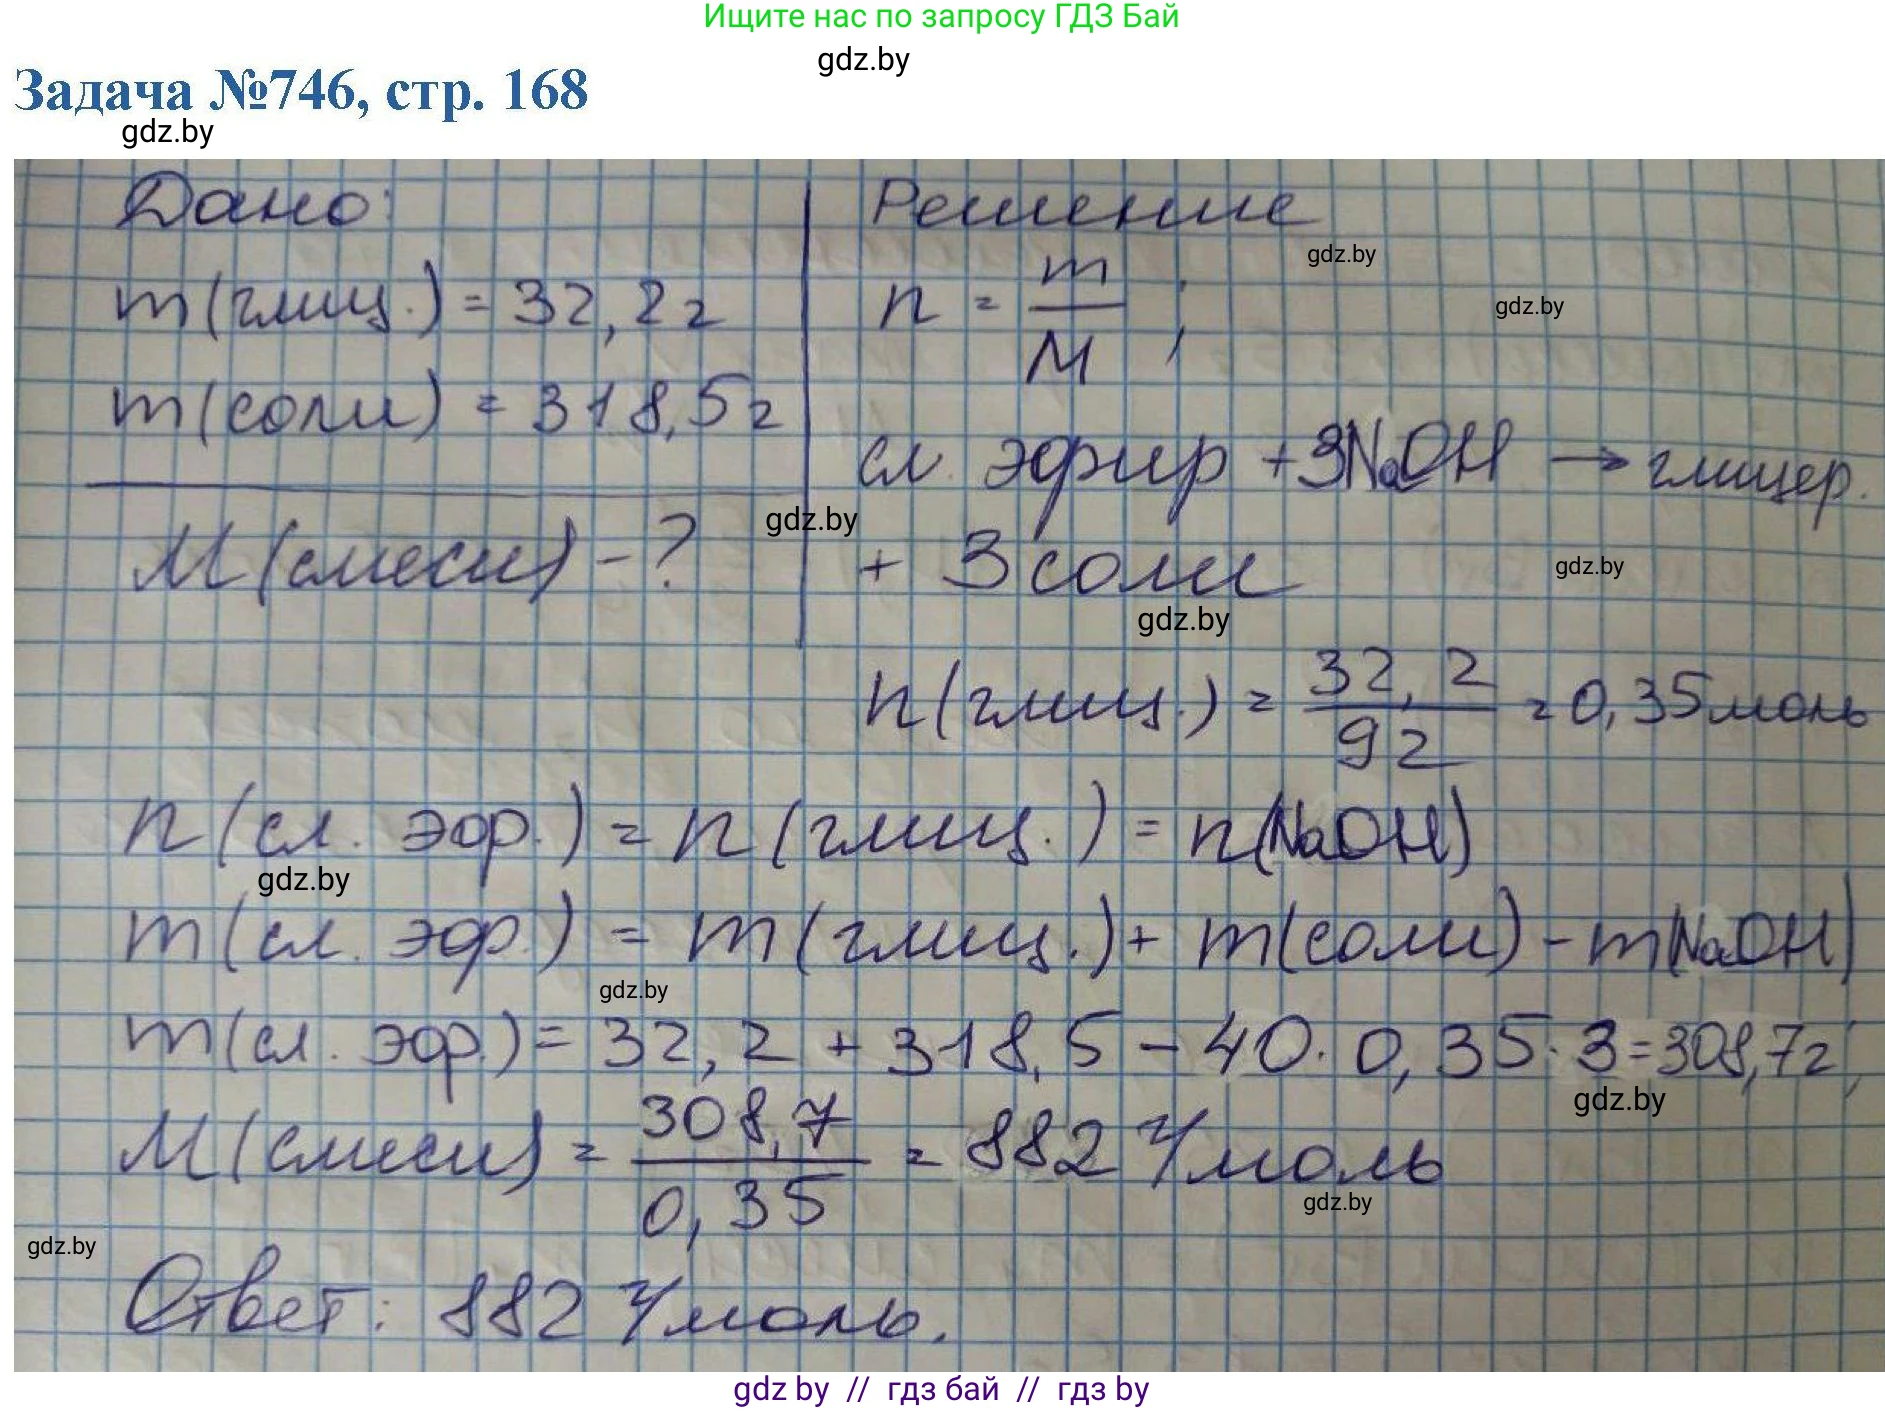 Ищите нас по запросу ГДЗ Бай
gdz.by
Задача №746, стр. 168
gdz.by
Дано:
m(глиц.) = 32,2г
m(соли) = 318,5г
M(смеси) - ?
Решение
gdz.by
n = m/M ;
gdz.by
сл. эфир + 3NaOH → глицер.
gdz.by
+ 3 соли
gdz.by
gdz.by
n(глиц.) = 32,2/92 = 0,35 моль
n(сл. эфр.) = n(глиц.) = n(NaOH)
gdz.by
m(сл. эфр.) = m(глиц.) + m(соли) - m(NaOH)
gdz.by
m(сл. эфр.) = 32,2 + 318,5 - 40 · 0,35 · 3 = 308,7г;
gdz.by
M(смеси) = 308,7/0,35 = 882 г/моль
gdz.by
gdz.by
Ответ: 882 г/моль.
gdz by // гдз бай // гдз by